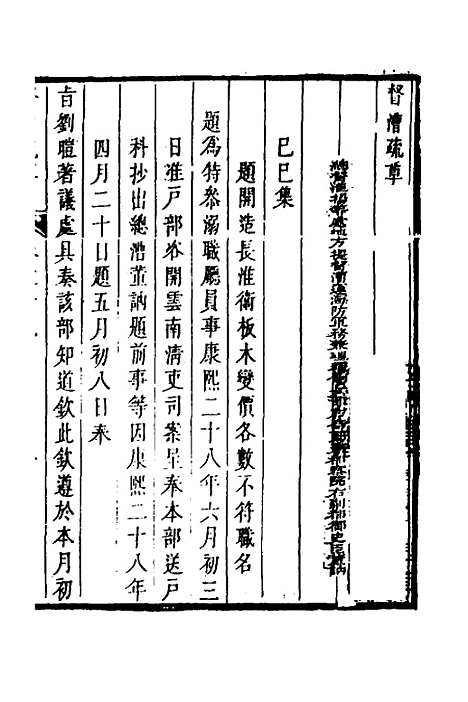 督漕疏草
總督漕運
提督
海防軍務
院右副都御史臣董訥
己巳集
題開造長淮衛板木變價各數不符職名
題為特參溺職廳員事康熙二十八年六月初三
日准戶部咨開雲南清吏司案呈奉本部送戶
科抄出總漕董訥題前事等因康熙二十八年
四月二十日題五月初八日奉
旨劉暟著議處具奏該部知道欽此欽遵於本月初